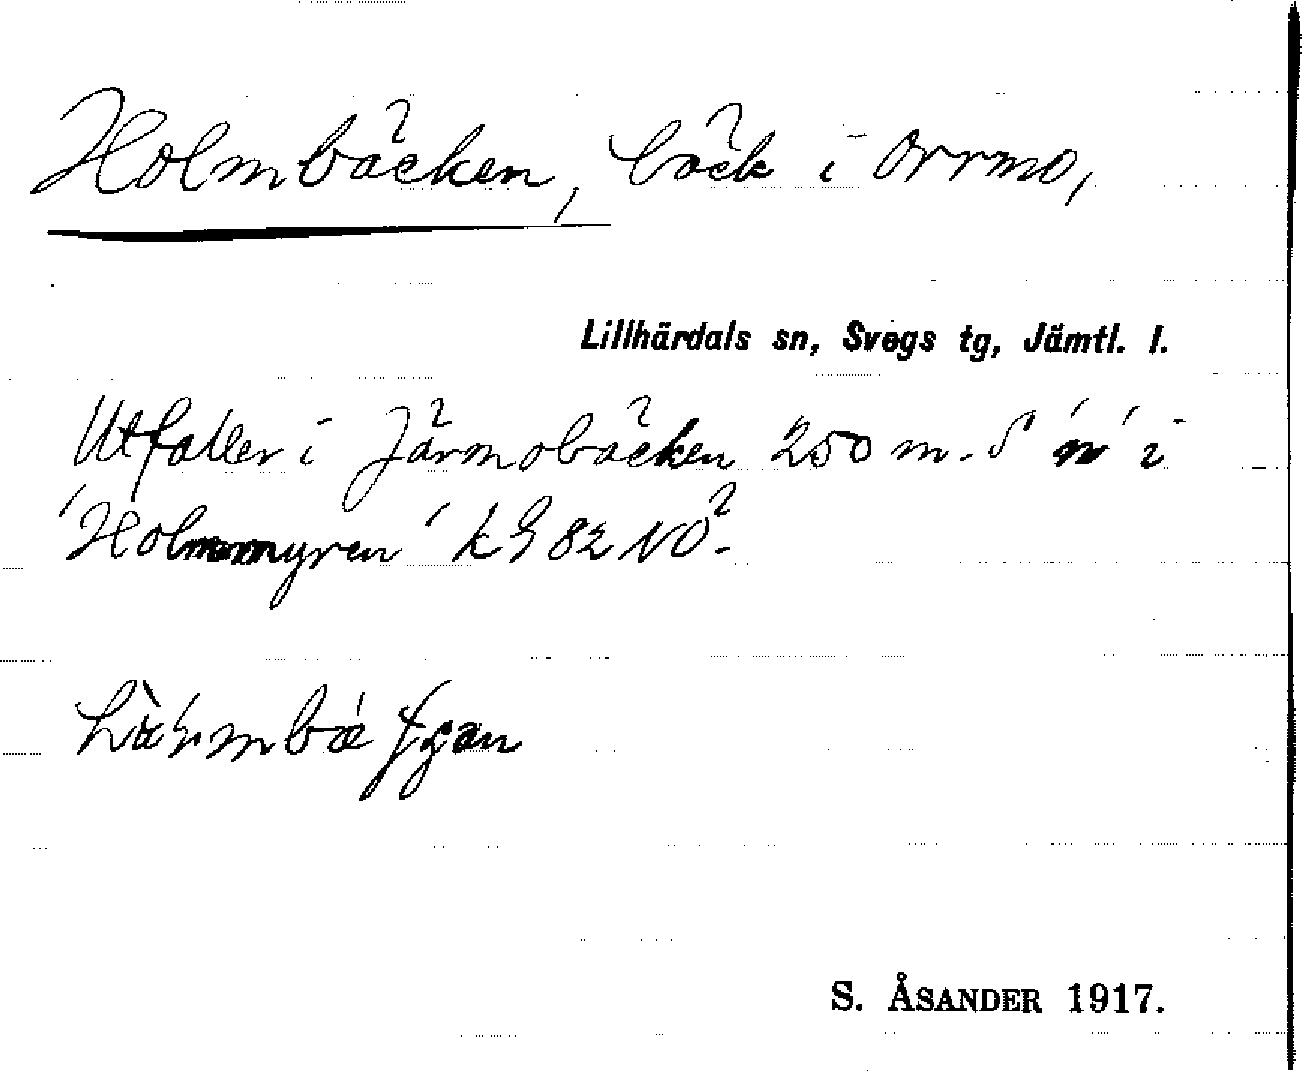 Holmbäcken, bäck i Orrmo,
Lillhärdals sn, Svegs tg, Jämtl. l.
Utfaller i Järmobäcken 250 m. S "n" i
"Holmmyren" k 9 82 NO.
S. ÅSANDER 1917.